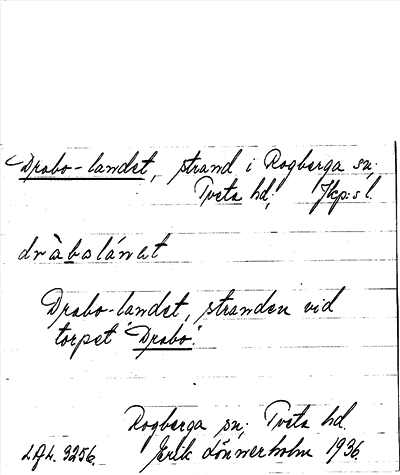 Drabo-landet, strand i Rogberga sn;
Tveta hd; Jkp:s l.
dràbolánnet
Drabo-landet, stranden vid
torpet "Drabo."
Rogberga sn; Tveta hd.
Erik Lönnerholm 1936.